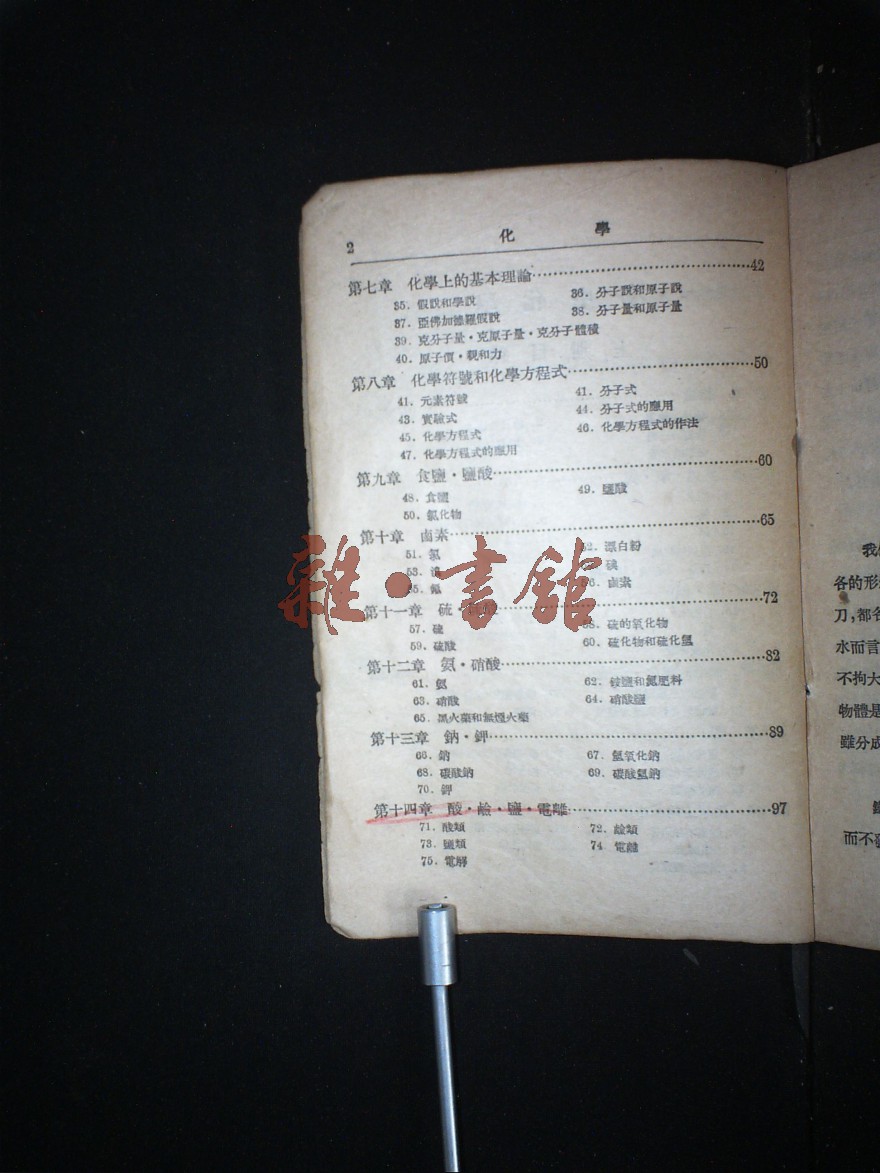 2 化 學
第七章 化學上的基本理論……42
35. 假說和學說 36. 分子說和原子說
37. 亞佛加德羅假說 38. 分子量和原子量
39. 克分子量·克原子量·克分子體積
40. 原子價·親和力
第八章 化學符號和化學方程式……50
41. 元素符號 41. 分子式
43. 實驗式 44. 分子式的應用
45. 化學方程式 46. 化學方程式的作法
47. 化學方程式的應用
第九章 食鹽·鹽酸……60
48. 食鹽 49. 鹽酸
50. 氯化物
第十章 鹵素……65
51. 氯 52. 漂白粉
53. 溴 碘
55. 氟 56. 鹵素
第十一章 硫·硫酸……72
57. 硫 58. 硫的氧化物
59. 硫酸 60. 硫化物和硫化氫
第十二章 氨·硝酸……82
61. 氨 62. 銨鹽和氮肥料
63. 硝酸 64. 硝酸鹽
65. 黑火藥和無煙火藥
第十三章 鈉·鉀……89
66. 鈉 67. 氫氧化鈉
68. 碳酸鈉 69. 碳酸氫鈉
70. 鉀
第十四章 酸·鹼·鹽·電離……97
71. 酸類 72. 鹼類
73. 鹽類 74 電離
75. 電解
雜·書館
我
各的形
刀,都各
水而言
不拘大
物體是
雖分成
而不